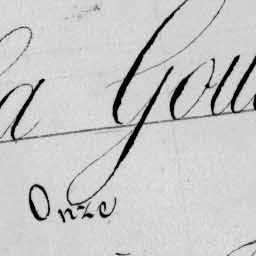 a Gou
Onze